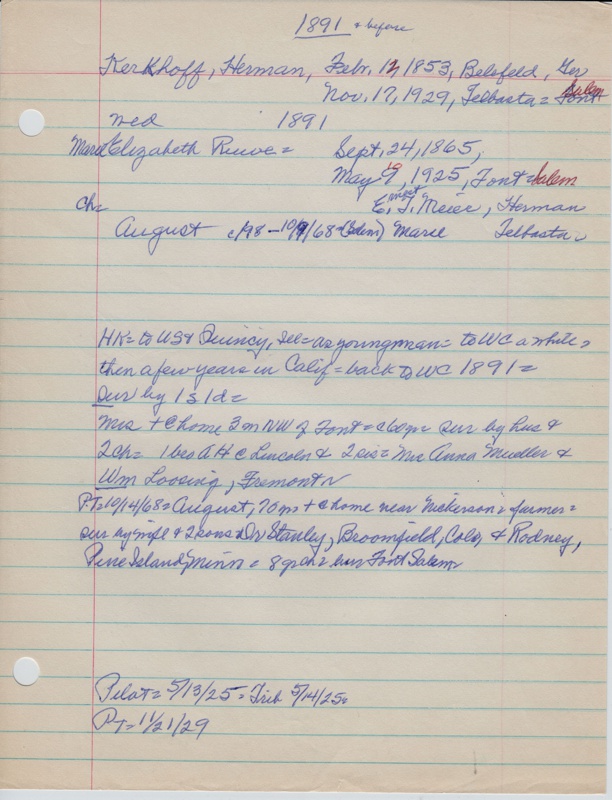 1891 & before
Kerkhoff, Herman, Febr. 12, 1853, Belefeld, Ger
Nov. 17, 1929, Telbasta = Font Salem
med 1891
Marie Elizabeth = Sept. 24, 1865,
May 9, 1925, Font = Salem
ch= E. J. Meier, Herman
August c/98 – 10/9/68 = (Salem) Marie Telbasta
HK = to US & Quincy, Ill = as young man = to WC a while =
then a few years in Calif = back to WC 1891 =
sur by 1 s 1 d =
Mrs + @ home 3 m NW of Font = 60 yr = sur by hus &
2 ch = 1 bro A H @ Lincoln & 2 sis = Mrs Anna Mueller &
Wm Loosing, Fremont
PT = 10/14/68 = August, 70 yr + @ home near Nickerson = farmer =
sur by wife & 2 sons = Dr Stanley, Broomfield, Colo, & Rodney,
Pine Island, Minn = 8 gr ch = bur Font Salem
Pilot = 5/13/25 = Trib 5/14/25 =
PT = 11/21/29